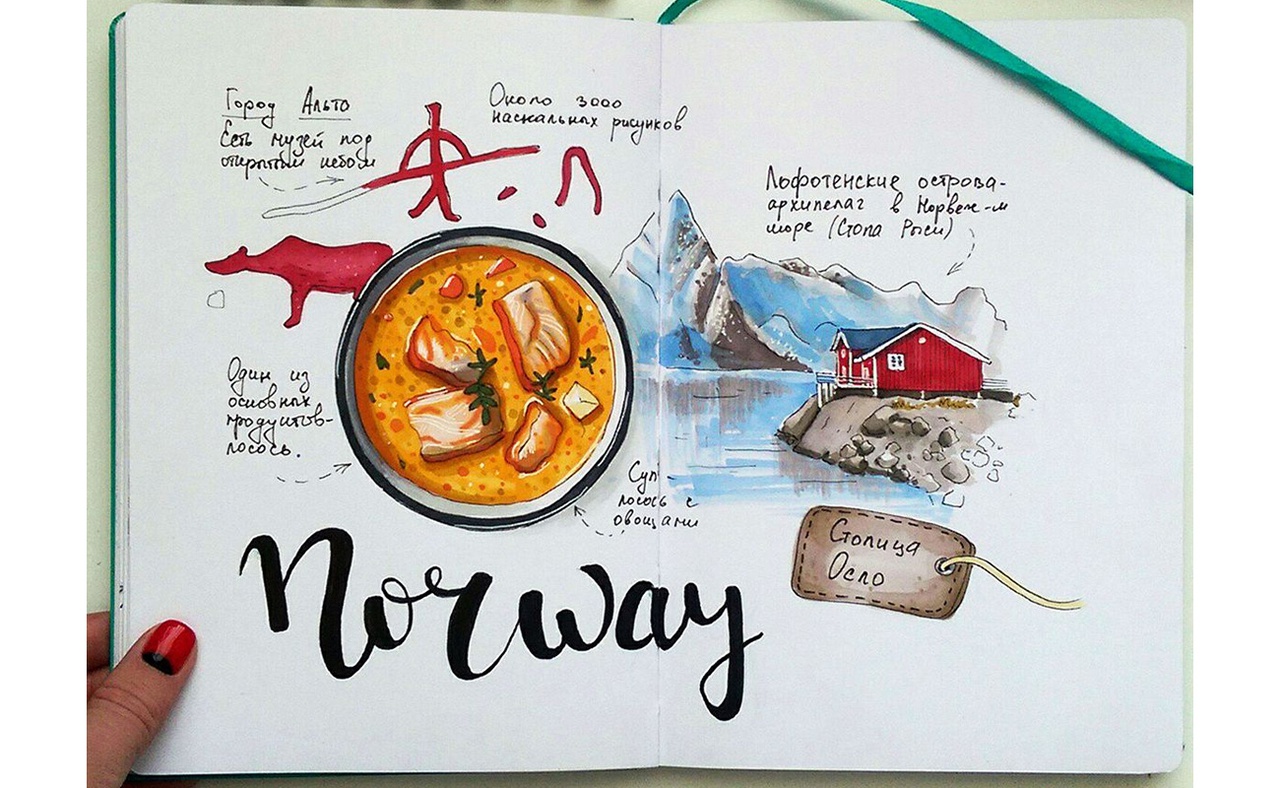 Город Альта
Есть музей под
открытым небом
Около 3000
наскальных рисунков
Лофотенские острова-
архипелаг в Норвеж-м
море (Стопа Рыси)
Один из
основных
продуктов-
лосось.
Суп
лосось с
овощами
Norway
Столица
Осло